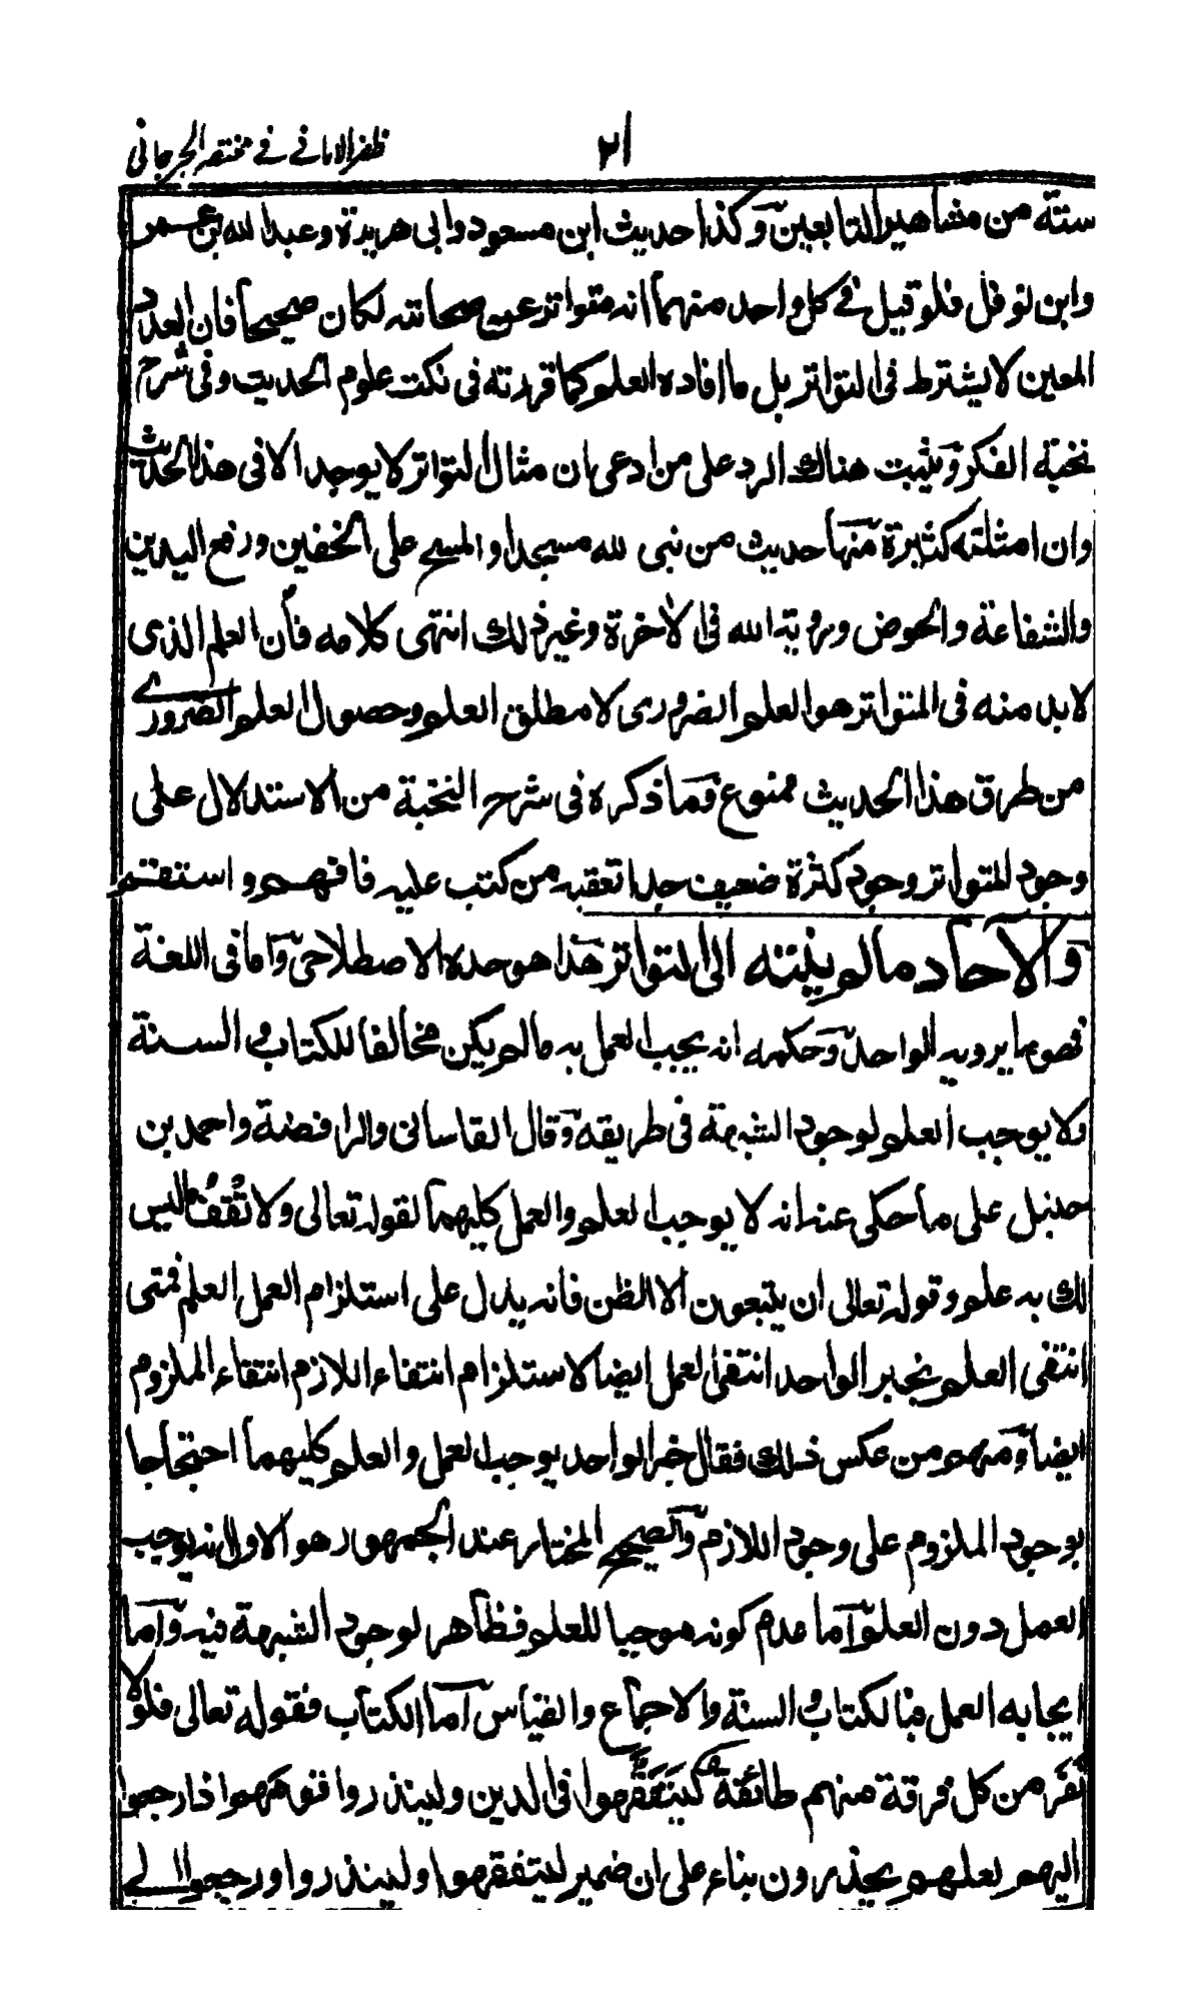 ٢١ ظفر الاماني في مختصر الجرجاني
ستة من مشاهير التابعين وكذا حديث ابن مسعود وابى هريرة وعبد الله بن عمر
وابن نوفل فلو قيل في كل واحد منهما انه متواتر عن صحابته لكان صحيحا فان العدد
المعين لا يشترط فى المتواتر بل ما افاده العلم كما قررته فى نكت علوم الحديث وفى شرح
نخبة الفكر وبينت هناك الرد على من ادعى ان مثال المتواتر لا يوجد الا فى هذا الحديث
وان امثلته كثيرة منها حديث من بنى لله مسجدا والمسح على الخفين ورفع اليدين
والشفاعة والحوض ورؤية الله فى الآخرة وغير ذلك انتهى كلامه فان العلم الذى
لا بد منه فى المتواتر هو العلم الضرورى لا مطلق العلم وحصول العلم الضرورے
من طرق هذا الحديث ممنوع فما ذكره فى شرح النخبة من الاستدلال على
وجود المتواتر وجود كثرة ضعيف جدا تعقبه من كتب عليه فافهم واستقم
والآحاد ما لم ينته الى المتواتر هذا هو حده الاصطلاحى واما فى اللغة
فهو ما يرويه الواحد وحكمه انه يجب العمل به ما لم يكن مخالفا للكتاب و السنة
ولا يوجب العلم لوجود الشبهة فى طريقه وقال القاسانى والرافضة واحمد بن
حنبل على ما حكى عنه انه لا يوجب العلم والعمل كليهما لقوله تعالى ولا تَقْفُ ما ليس
لك به علم وقوله تعالى ان يتبعون الا الظن فانه يدل على استلزام العمل العلم فمتى
انتفى العلم بخبر الواحد انتفى العمل ايضا لاستلزام انتفاء اللازم انتفاء الملزوم
ايضا ومنهم من عكس ذلك فقال خبر الواحد يوجب العمل والعلم كليهما احتجاجا
بوجود الملزوم على وجود اللازم والصحيح المختار عند الجمهور هو الاول انه يوجب
العمل دون العلم اما عدم كونه موجبا للعلم فظاهر لوجود الشبهة فيه واما
ايجابه العمل فبالكتاب و السنة والاجماع والقياس اما الكتاب فقوله تعالى فلولا
نَفَر من كل فرقة منهم طائفةٌ لِيَتَفَقَّهوا فى الدين ولينذروا قومهم اذا رجعوا
اليهم لعلهم يحذرون بناء على ان ضمير ليتفقهوا ولينذروا ورجعوا الے